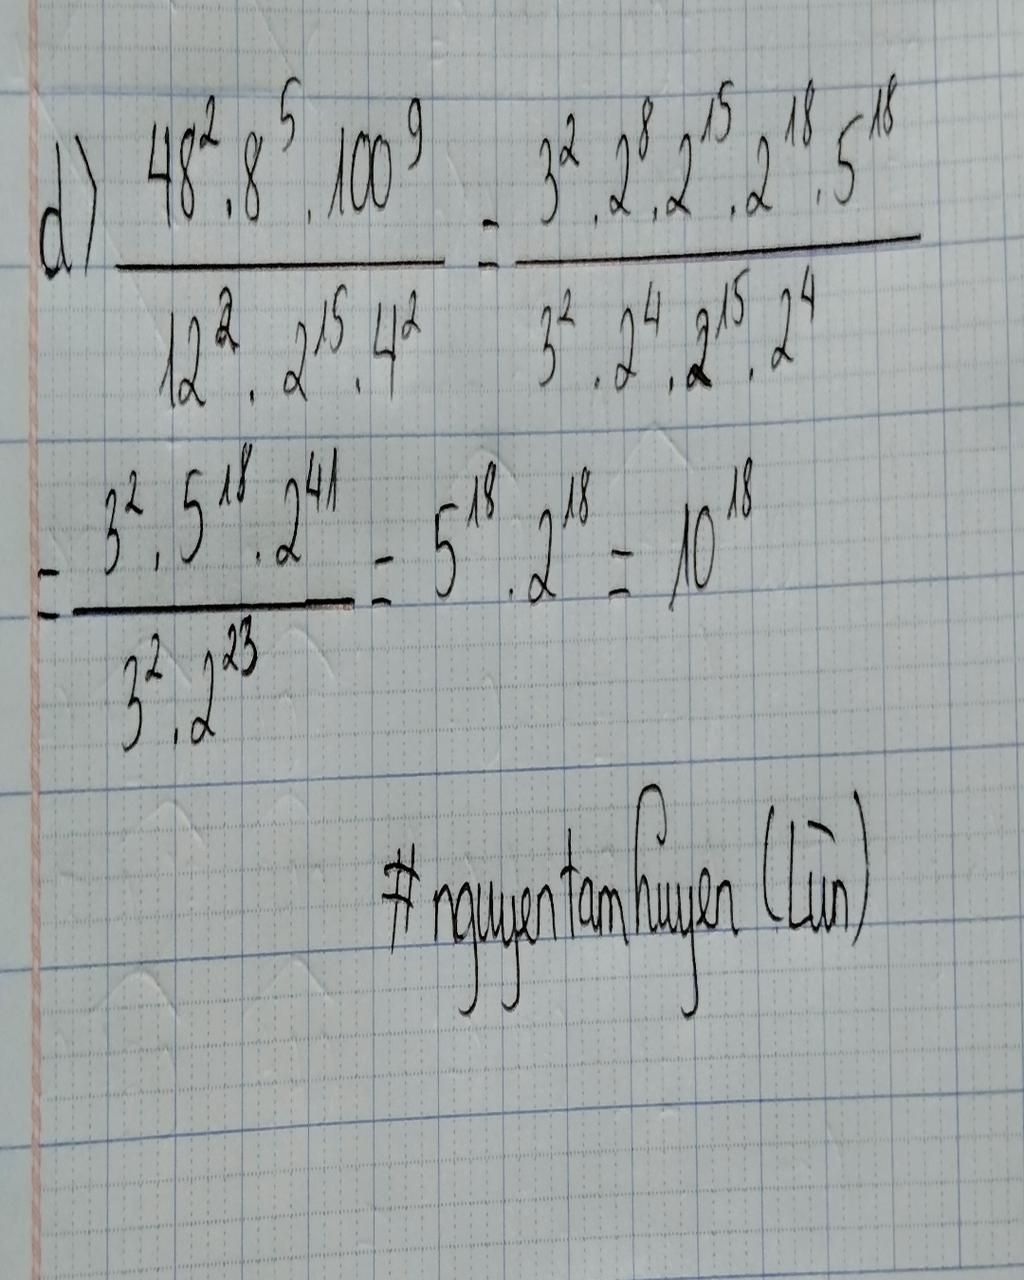 d) 48².8⁵.100⁹ / 12².2¹⁵.4² = 3².2⁸.2¹⁵.2¹⁸.5¹⁸ / 3².2⁴.2¹⁵.2⁴
= 3².5¹⁸.2⁴¹ / 3².2²³ = 5¹⁸.2¹⁸ = 10¹⁸
#nguyentamhuyen (Lùn)